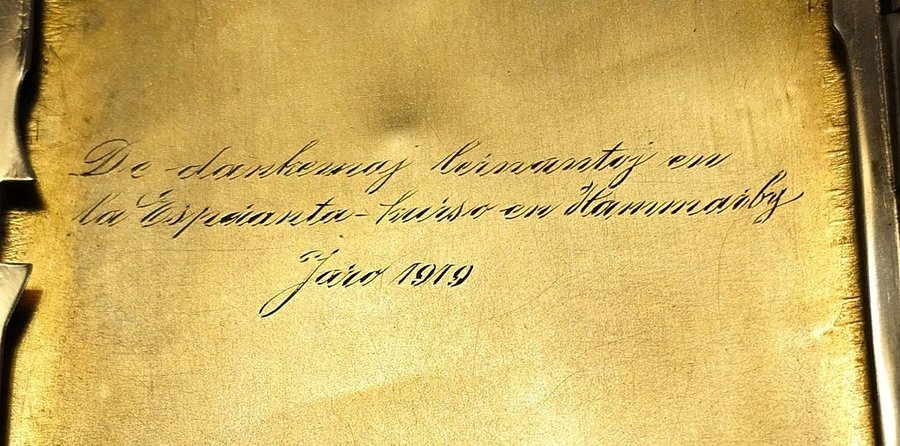 De dankemaj lernantoj en
la Esperanta-kurso en Hammarby
Jaro 1919